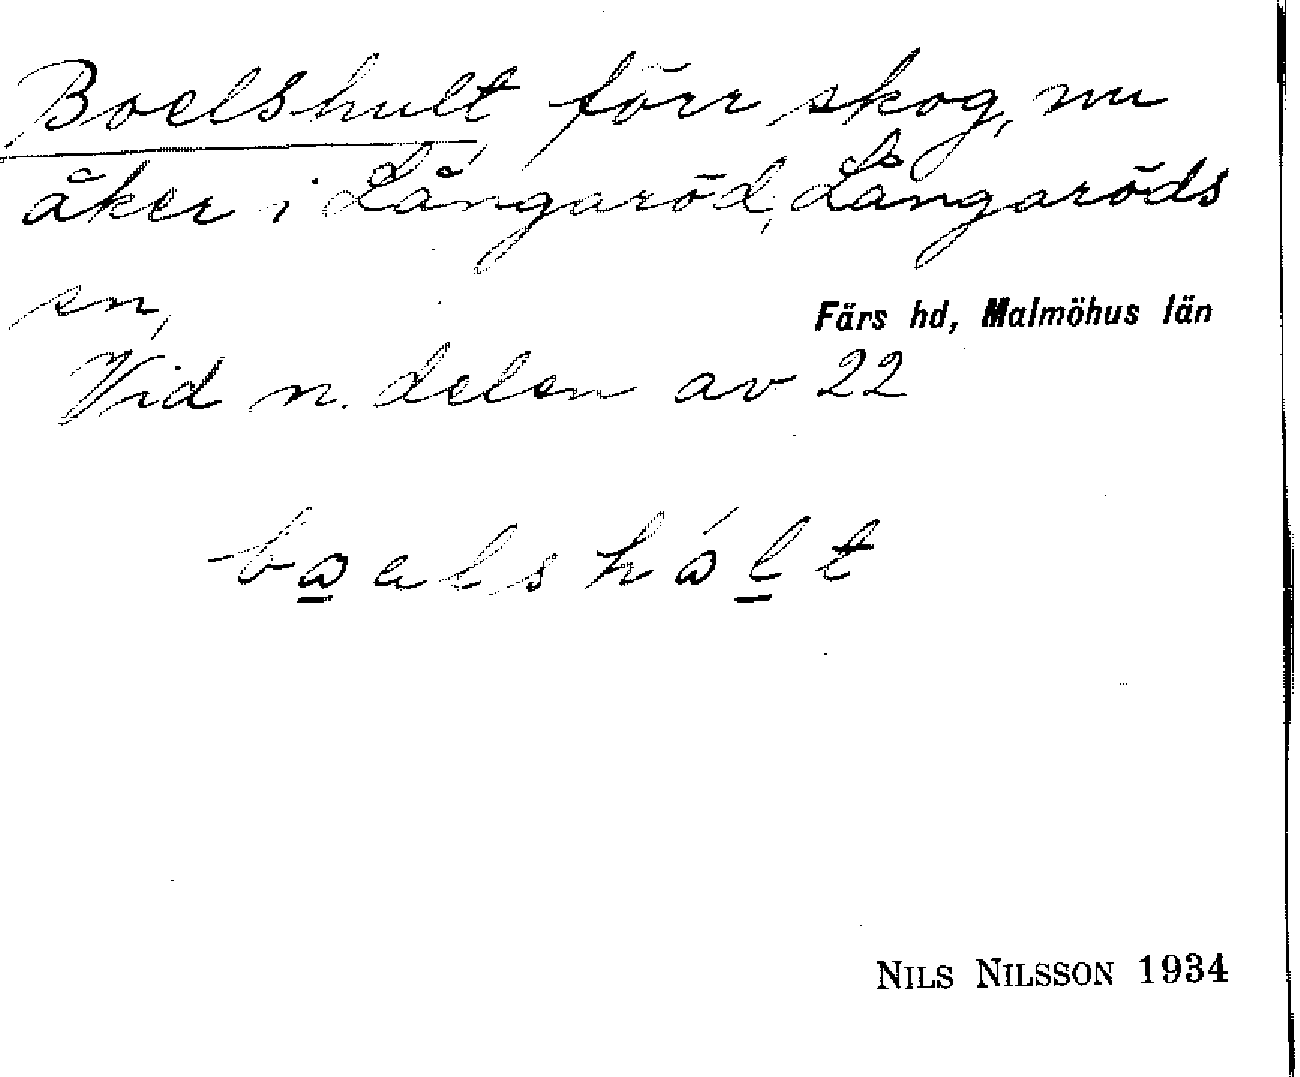 Boelshult förr skog, nu
åker i Långaröd, Långaröds
sn,
Färs hd, Malmöhus län
Vid n. delen av 22
NILS NILSSON 1934